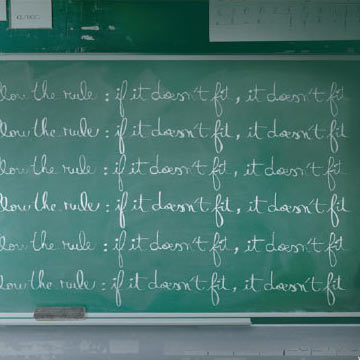 llow the rule : if it doesn't fit, it doesn't fit
llow the rule : if it doesn't fit, it doesn't fit
llow the rule : if it doesn't fit, it doesn't fit
llow the rule : if it doesn't fit, it doesn't fit
llow the rule : if it doesn't fit, it doesn't fit
llow the rule : if it doesn't fit, it doesn't fit